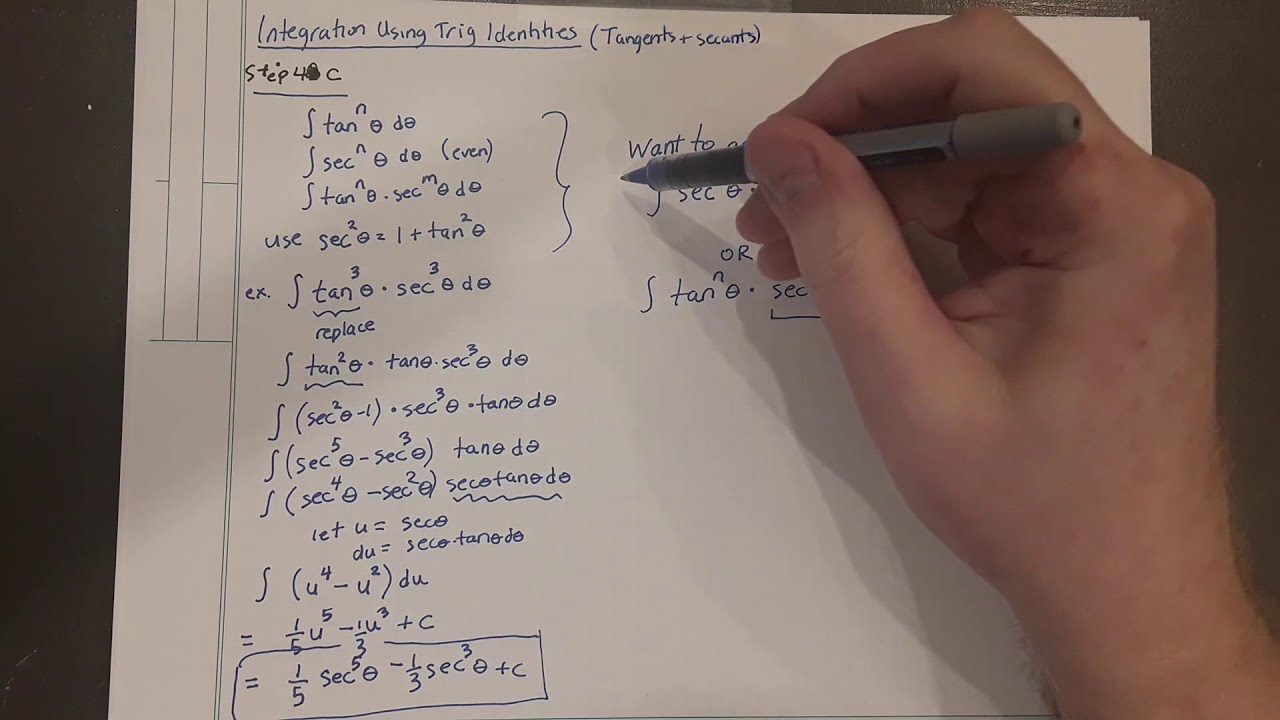 Integration Using Trig Identities (Tangents + secants)
Step 4 C
∫ tanⁿθ dθ
∫ secⁿθ dθ (even)
∫ tanⁿθ · secᵐθ dθ
use sec²θ = 1 + tan²θ
ex. ∫ tan³θ · sec³θ dθ
replace
∫ tan²θ · tanθ · sec³θ dθ
∫ (sec²θ - 1) · sec³θ · tanθ dθ
∫ (sec⁵θ - sec³θ) tanθ dθ
∫ (sec⁴θ - sec²θ) secθ tanθ dθ
let u = secθ
du = secθ · tanθ dθ
∫ (u⁴ - u²) du
= 1/5 u⁵ - 1/3 u³ + C
= 1/5 sec⁵θ - 1/3 sec³θ + C
Want to
∫ sec θ ·
OR
∫ tanⁿθ · sec